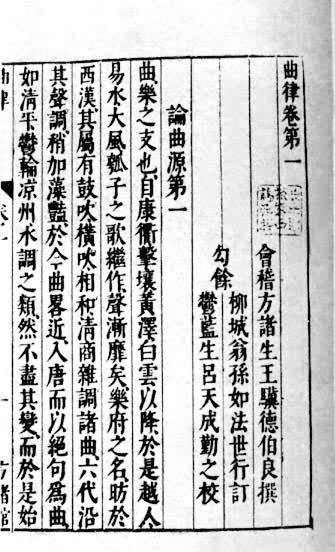 曲律卷第一
會稽方諸生王驥德伯良撰
柳城翁孫如法世行訂
勾餘
鬱藍生呂天成勤之校
論曲源第一
曲樂之支也自康衢擊壤黃澤白雲以降於是越人
易水大風瓠子之歌繼作聲漸靡矣樂府之名昉於
西漢其屬有鼓吹橫吹相和清商雜調諸曲六代沿
其聲調稍加藻豔於今曲畧近入唐而以絕句爲曲
如清平鬱輪凉州水調之類然不盡其變而於是始
曲律
卷一
一
方諸館